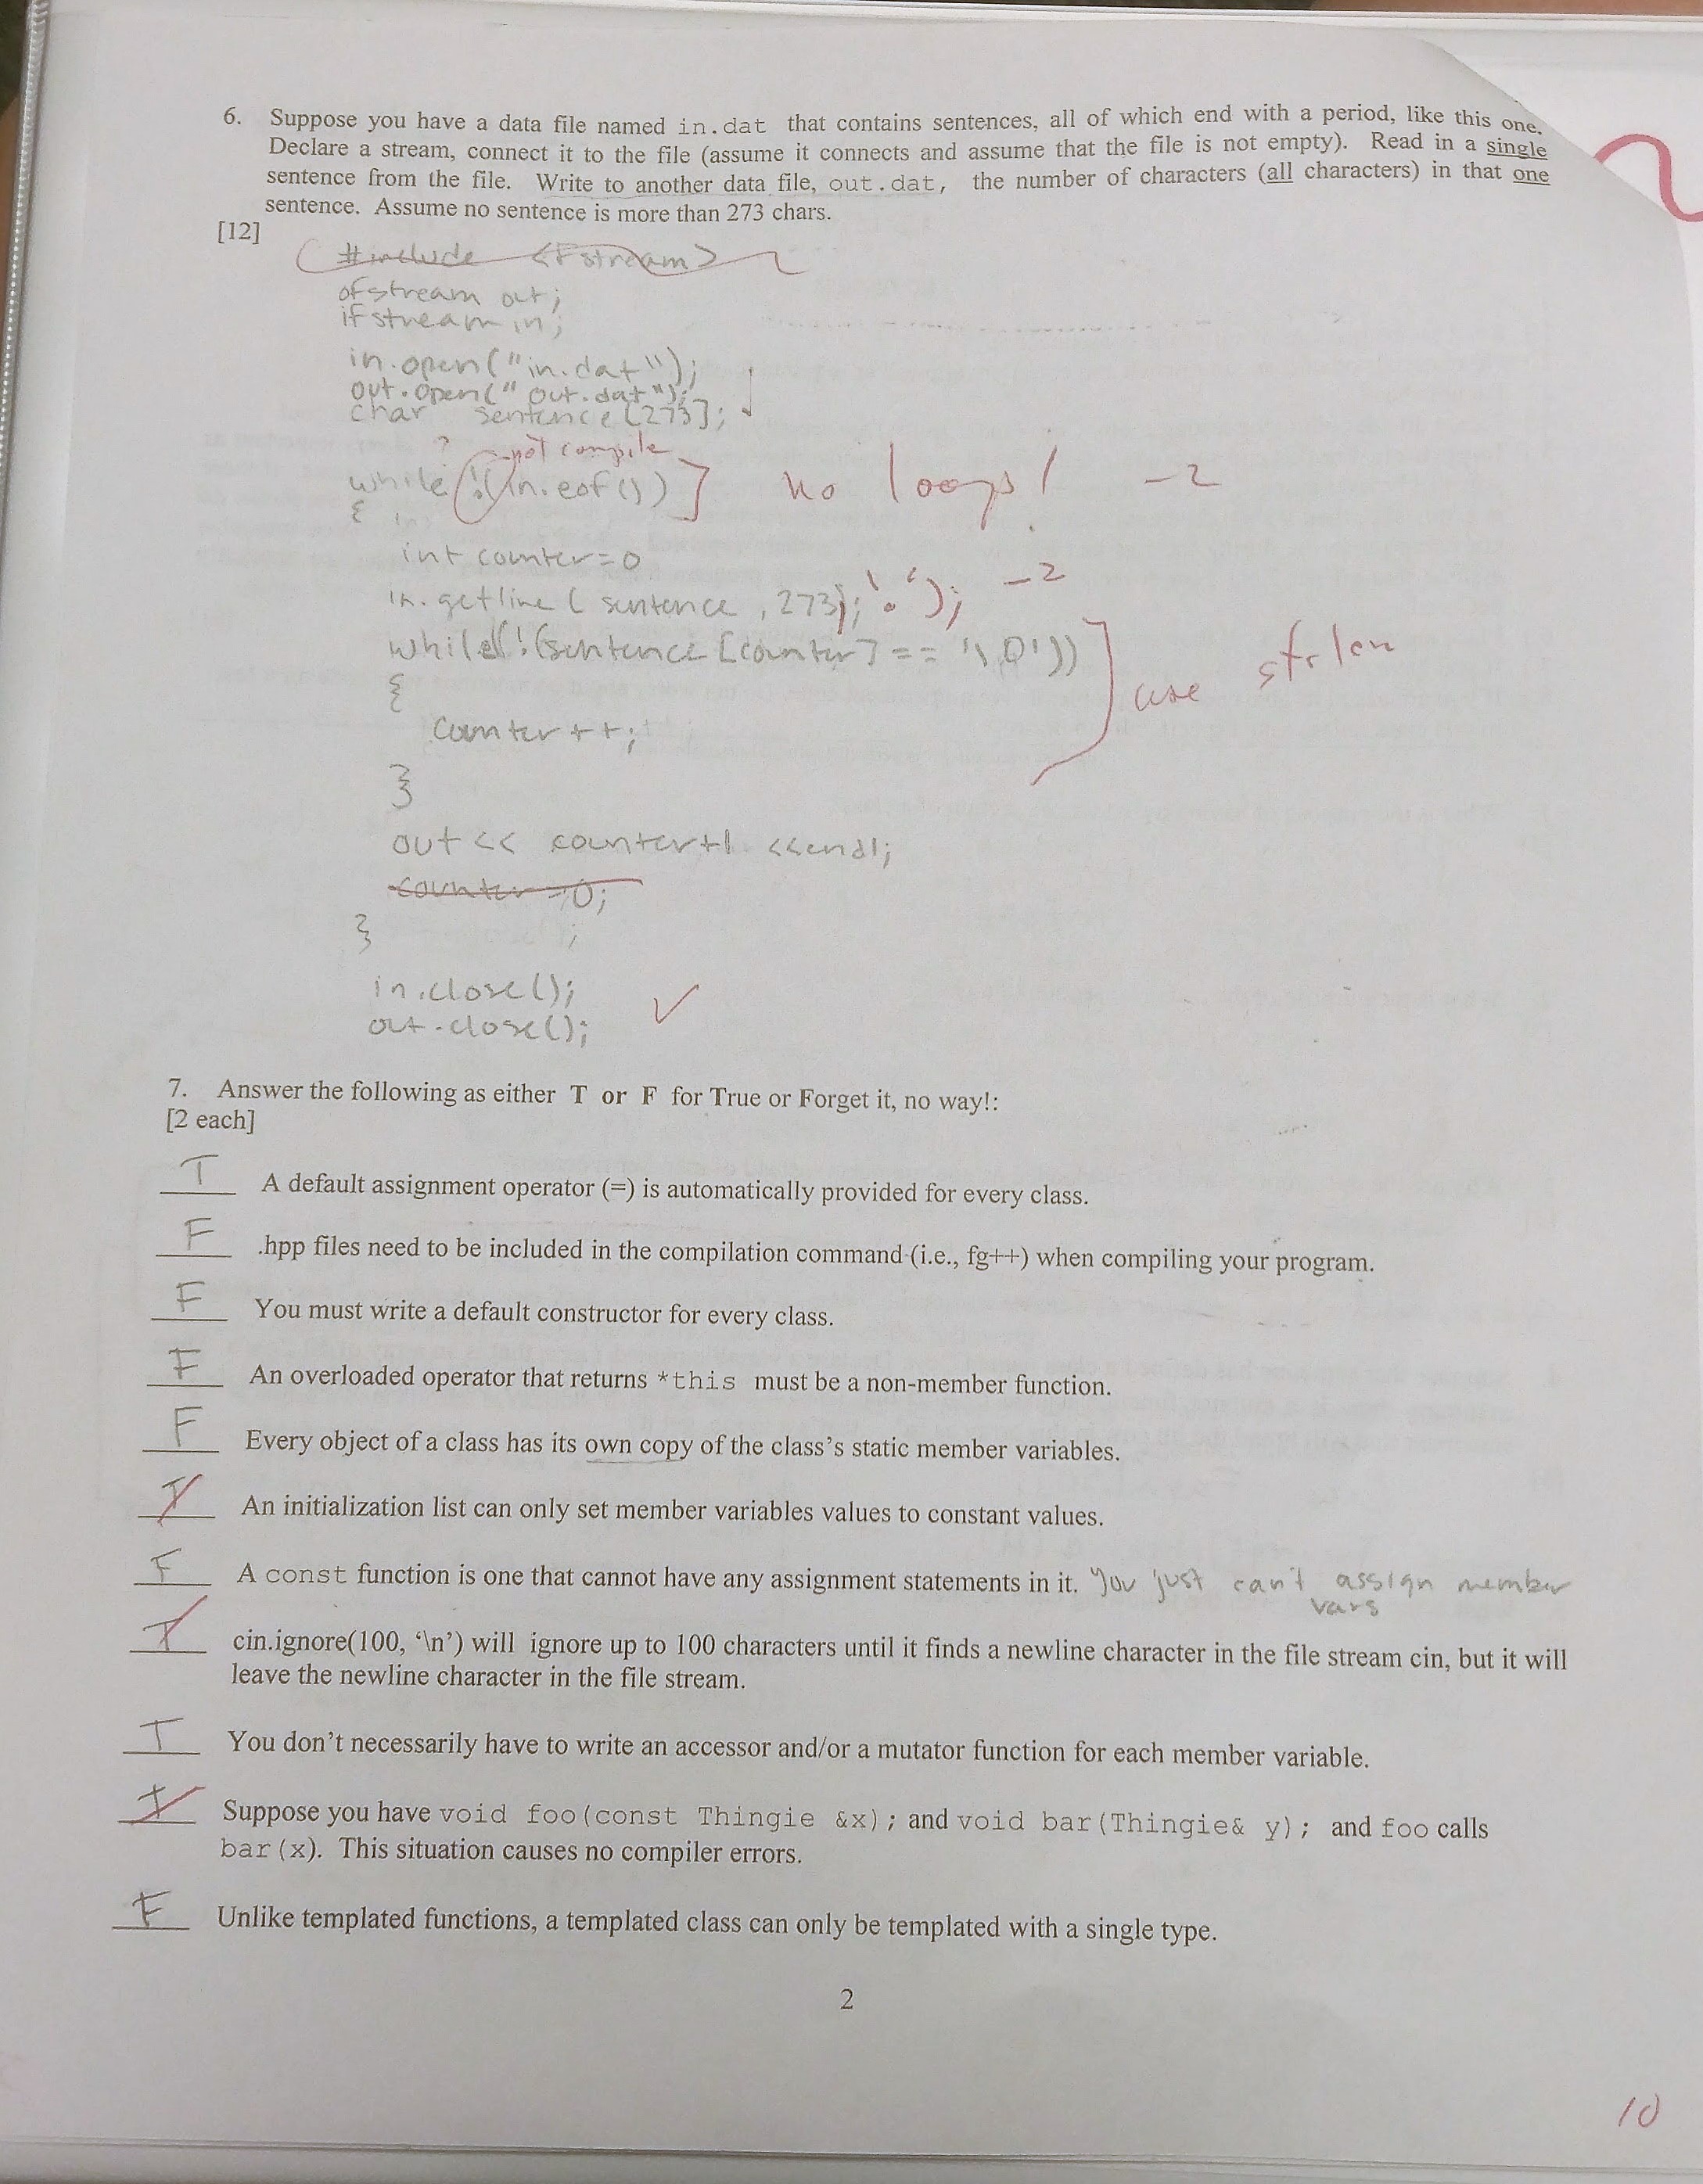 6. Suppose you have a data file named in.dat that contains sentences, all of which end with a period, like this one.
Declare a stream, connect it to the file (assume it connects and assume that the file is not empty). Read in a single
sentence from the file. Write to another data file, out.dat, the number of characters (all characters) in that one
sentence. Assume no sentence is more than 273 chars.
[12]
#include <fstream>
ofstream out;
ifstream in;
in.open("in.dat");
out.open("out.dat");
char sentence[273];
? not compile
while !(in.eof()) no loops! -2
{
int counter=0
in.getline( sentence, 273); '.'); -2
while(!(sentence[counter] == '\0'))
{ use strlen
counter++;
}
out << counter+1 <<endl;
counter=0;
}
in.close();
out.close();
7. Answer the following as either T or F for True or Forget it, no way!:
[2 each]
T A default assignment operator (=) is automatically provided for every class.
F .hpp files need to be included in the compilation command (i.e., fg++) when compiling your program.
F You must write a default constructor for every class.
F An overloaded operator that returns *this must be a non-member function.
F Every object of a class has its own copy of the class's static member variables.
T An initialization list can only set member variables values to constant values.
F A const function is one that cannot have any assignment statements in it. You just can't assign member
vars
T cin.ignore(100, '\n') will ignore up to 100 characters until it finds a newline character in the file stream cin, but it will
leave the newline character in the file stream.
T You don't necessarily have to write an accessor and/or a mutator function for each member variable.
T Suppose you have void foo(const Thingie &x); and void bar(Thingie& y); and foo calls
bar(x). This situation causes no compiler errors.
F Unlike templated functions, a templated class can only be templated with a single type.
2
10